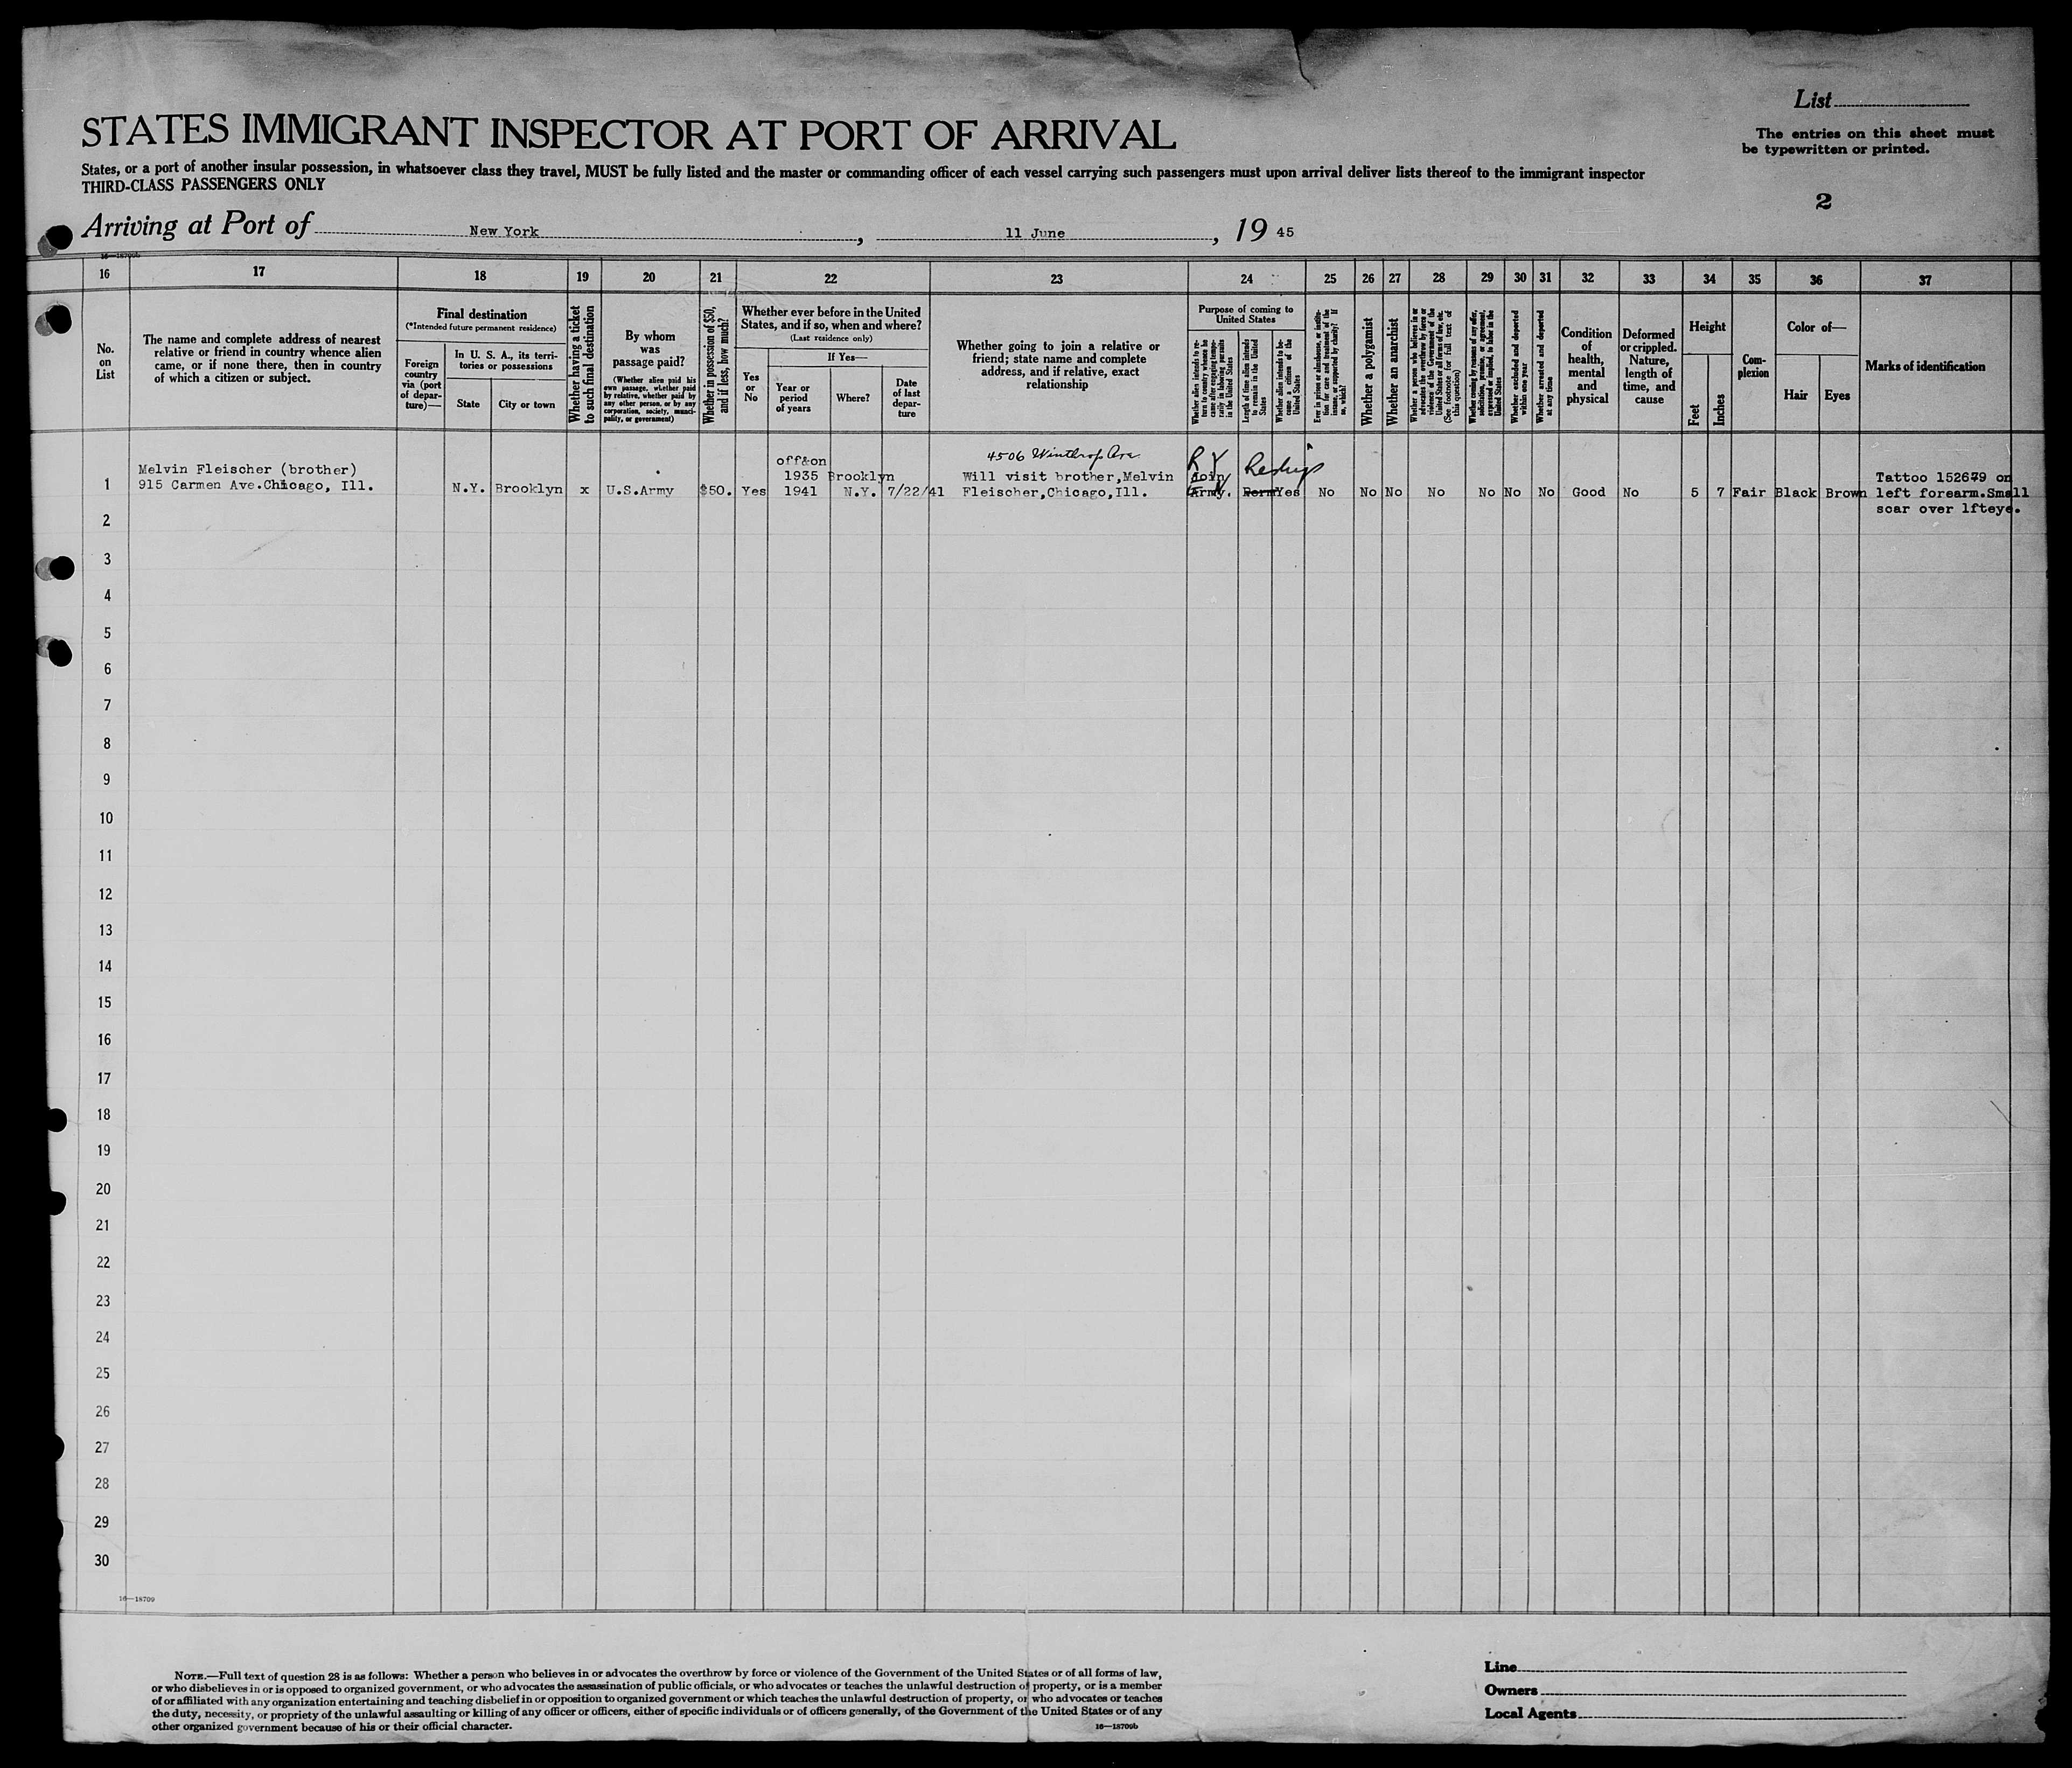 List
STATES IMMIGRANT INSPECTOR AT PORT OF ARRIVAL
The entries on this sheet must
be typewritten or printed.
States, or a port of another insular possession, in whatsoever class they travel, MUST be fully listed and the master or commanding officer of each vessel carrying such passengers must upon arrival deliver lists thereof to the immigrant inspector
THIRD-CLASS PASSENGERS ONLY
2
Arriving at Port of New York, 11 June, 19 45
16 17 18 19 20 21 22 23 24 25 26 27 28 29 30 31 32 33 34 35 36 37
No. on List
The name and complete address of nearest
relative or friend in country whence alien
came, or if none there, then in country
of which a citizen or subject.
Final destination
(*Intended future permanent residence)
Foreign country via (port of departure)—
In U. S. A., its territories or possessions
State
City or town
Whether having a ticket to such final destination
By whom was passage paid?
(Whether alien paid his own passage, whether paid by relative, whether paid by any other person, or by any corporation, society, municipality, or government)
Whether in possession of $50, and if less, how much?
Whether ever before in the United States, and if so, when and where?
(Last residence only)
Yes or No
If Yes—
Year or period of years
Where?
Date of last departure
Whether going to join a relative or
friend; state name and complete
address, and if relative, exact
relationship
Purpose of coming to United States
Whether alien intends to return to country whence he came after engaging temporarily in laboring pursuits in the United States
Length of time alien intends to remain in the United States
Whether alien intends to become a citizen of the United States
Ever in prison or almshouse, or institution for care and treatment of the insane, or supported by charity? If so, which?
Whether a polygamist
Whether an anarchist
Whether a person who believes in or advocates the overthrow by force or violence of the Government of the United States or all forms of law, etc. (See footnote for full text of this question)
Whether coming by reason of any offer, solicitation, promise, or agreement, expressed or implied, to labor in the United States
Whether excluded and deported within one year
Whether arrested and deported at any time
Condition of health, mental and physical
Deformed or crippled. Nature, length of time, and cause
Height
Feet
Inches
Complexion
Color of—
Hair
Eyes
Marks of identification
1
Melvin Fleischer (brother)
915 Carmen Ave.Chicago, Ill.
N.Y. Brooklyn x U.S.Army $50. Yes
off&on
1935 Brooklyn
1941 N.Y. 7/22/41
4506 Winthrop Ave.
Will visit brother,Melvin
Fleischer,Chicago,Ill.
Join
Army. Yes
No No No No No No No Good No 5 7 Fair Black Brown
Tattoo 152679 on
left forearm.Small
scar over lfteye.
2
3
4
5
6
7
8
9
10
11
12
13
14
15
16
17
18
19
20
21
22
23
24
25
26
27
28
29
30
16—18709
NOTE.—Full text of question 28 is as follows: Whether a person who believes in or advocates the overthrow by force or violence of the Government of the United States or of all forms of law,
or who disbelieves in or is opposed to organized government, or who advocates the assassination of public officials, or who advocates or teaches the unlawful destruction of property, or is a member
of or affiliated with any organization entertaining and teaching disbelief in or opposition to organized government or which teaches the unlawful destruction of property, or who advocates or teaches
the duty, necessity, or propriety of the unlawful assaulting or killing of any officer or officers, either of specific individuals or of officers generally, of the Government of the United States or of any
other organized government because of his or their official character.
16—18709b
Line
Owners
Local Agents